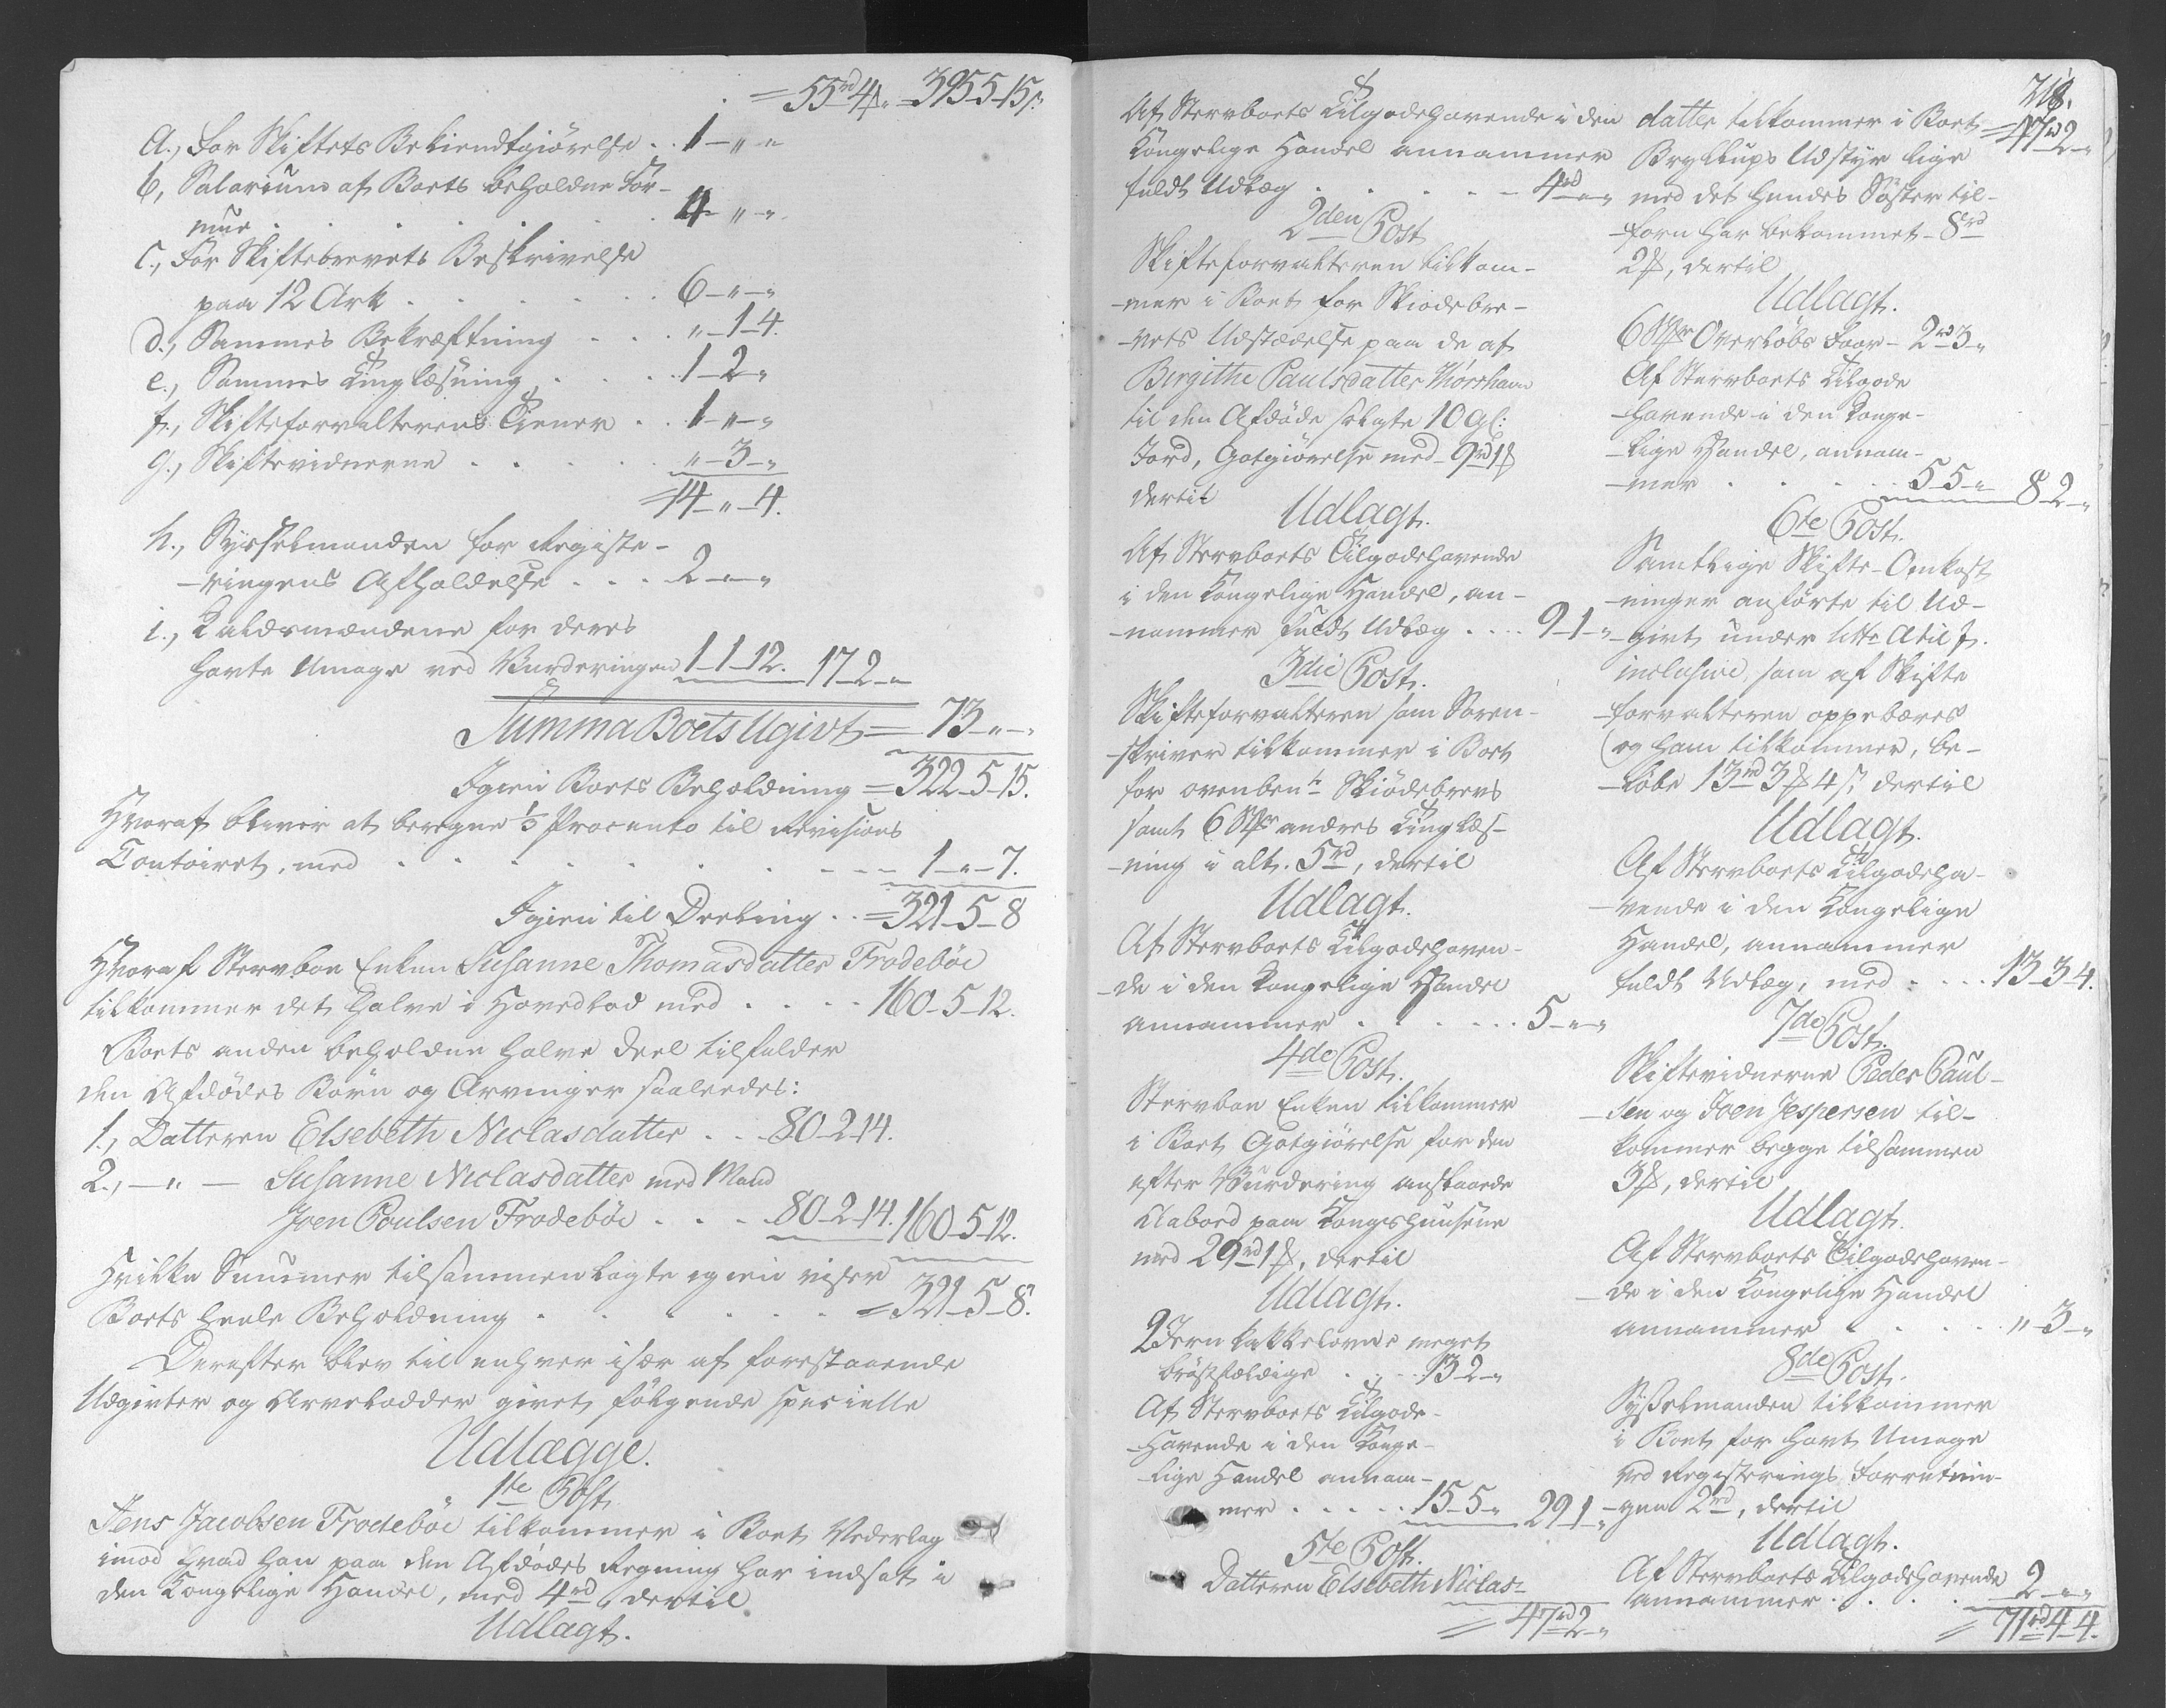 = 55rd 4ß " = 395-5-15ß
a., For Skiftets Bekiendtgiørelse . . 1 - " - "
b, Salarium af Boets beholdne For-
mue . . . . . . 4 - " - "
c., For Skiftebrevets Beskrivelse
paa 12 Ark . . . . . 6 - " - "
d., Sammes Bekræftning . . . " - 1 - 4.
e., Sammes Tinglæsning . . . . 1 - 2 - "
f., Skifteforvalterens Tiener . . 1 - " - "
g., Skiftevidnerne . . . . . " - 3 - "
= 14 - " - 4.
h., Sysselmanden for Registe-
-ringens Afholdelse . . . 2 - " - "
i., Lavdsmændene for deres
havte Umage ved Vurderingen 1-1-12. 17-2-"
Summa Boets Ugivt = 73 - " - "
Igien Boets Beholdning = 322-5-15.
Hvoraf bliver at beregne 1/3 Procento til Revisions
Contoiret, med . . . . . . . . 1 - " - 7.
Igien til Deeling . . = 321-5-8
Hvoraf Stervboe Enken Susanne Thomasdatter Frodebøe
tilkommer det halve i Hovedlod med . . . . 160-5-12.
Boets anden beholdne halve Deel tilfalder
den Afdødes Børn og Arvinger saaledes:
1., Datteren Elsebeth Niclasdatter . . . 80-2-14.
2., - " - Susanne Niclasdatter med Mand
Joen Poulsen Frodebøe . . . . 80-2-14. 160-5-12.
Hvilke Summer tilsammenlagte igien viser
Boets heele Beholdning . . . . . . = 321-5-8.
Derefter blev til enhver især af forestaaende
Udgivter og Arvelodder givet følgende specielle
Udlægge.
1te Post.
Jens Jacobsen Frodebøe tilkommer i Boet Vederlag
imod hvad han paa den Afdødes Regning har indsat i
den Kongelige Handel, med 4rd, dertil
Udlagt.
Af Stervboets Tilgodehavende i den
Kongelige Handel annammer
fuldt Udlæg . . . . . 4rd - " - "
2den Post
Skifteforvalteren tilkom-
-mer i Boet for Skiødebre-
-vets Udstædelse paa de af
Birgithe Paulsdatter Thorshavn
til den Afdøde solgte 10 Gl:
Jord, Gotgiørelse med 9rd 1ß
dertil
Udlagt.
Af Stervboets Tilgodehavende
i den Kongelige Handel, an-
-nammer fuldt Udlæg . . . . 9-1-"
3die Post.
Skifteforvalteren som Soren-
-skriver tilkommer i Boet
for ovenbente Skiødebrevs
samt 6 Stkr andres Tinglæs-
-ning i alt 5rd, dertil
Udlagt.
Af Stervboets Tilgodehaven-
-de i den Kongelige Handel
annammer . . . . . . 5 - " - "
4de Post.
Stervboe Enken tilkommer
i Boet Gotgiørelse for den
efter Vurdering anslaaede
Aabord paa Kongshuusene
med 29rd 1ß, dertil
Udlagt.
2 Jern Kakkelovne meget
brøstfældige . . . . 13-2-"
Af Stervboets Tilgode-
-havende i den Konge-
-lige Handel annam-
mer . . . . . 15-5-" 29-1-"
5te Post.
Datteren Elsebeth Niclas-
= 47rd 2-"
718.
datter tilkommer i Boet = 47rd 2-"
Bryllups Udstyr lige
med det hendes Søster til-
-forn har bekommet - 8rd
2ß, dertil
Udlagt.
6 Stkr Overløbs Faar - 2rd 3-"
Af Stervboets Tilgode
-havende i den Konge-
-lige Handel, annam-
-mer . . . . . 5-5-" 8-2-"
6te Post.
Samtlige Skifte-Omkost
-ninger anførte til Ud-
-givt under Litte a til f.
inclusive, som af Skifte
-forvalteren oppebæres
(og ham tilkommer, be-
-løbe 13rd 3ß 4ß, dertil
Udlagt.
Af Stervboets Tilgodeha-
-vende i den Kongelige
Handel, annammer
fuldt Udlæg, med . . . . 13-3-4.
7de Post.
Skiftevidnerne Peder Paul-
-sen og Joen Jespersen til-
kommer begge tilsammen
3ß, dertil
Udlagt.
Af Stervboets Tilgodehaven-
-de i den Kongelige Handel
annammer . . . . . " - 3 - "
8de Post.
Sysselmanden tilkommer
i Boet for havt Umage
ved Registerings Forretnin-
-gen 2rd, dertil
Udlagt.
Af Stervboets Tilgodehavende
annammer . . . . 2 - " - "
= 71rd 4-4.